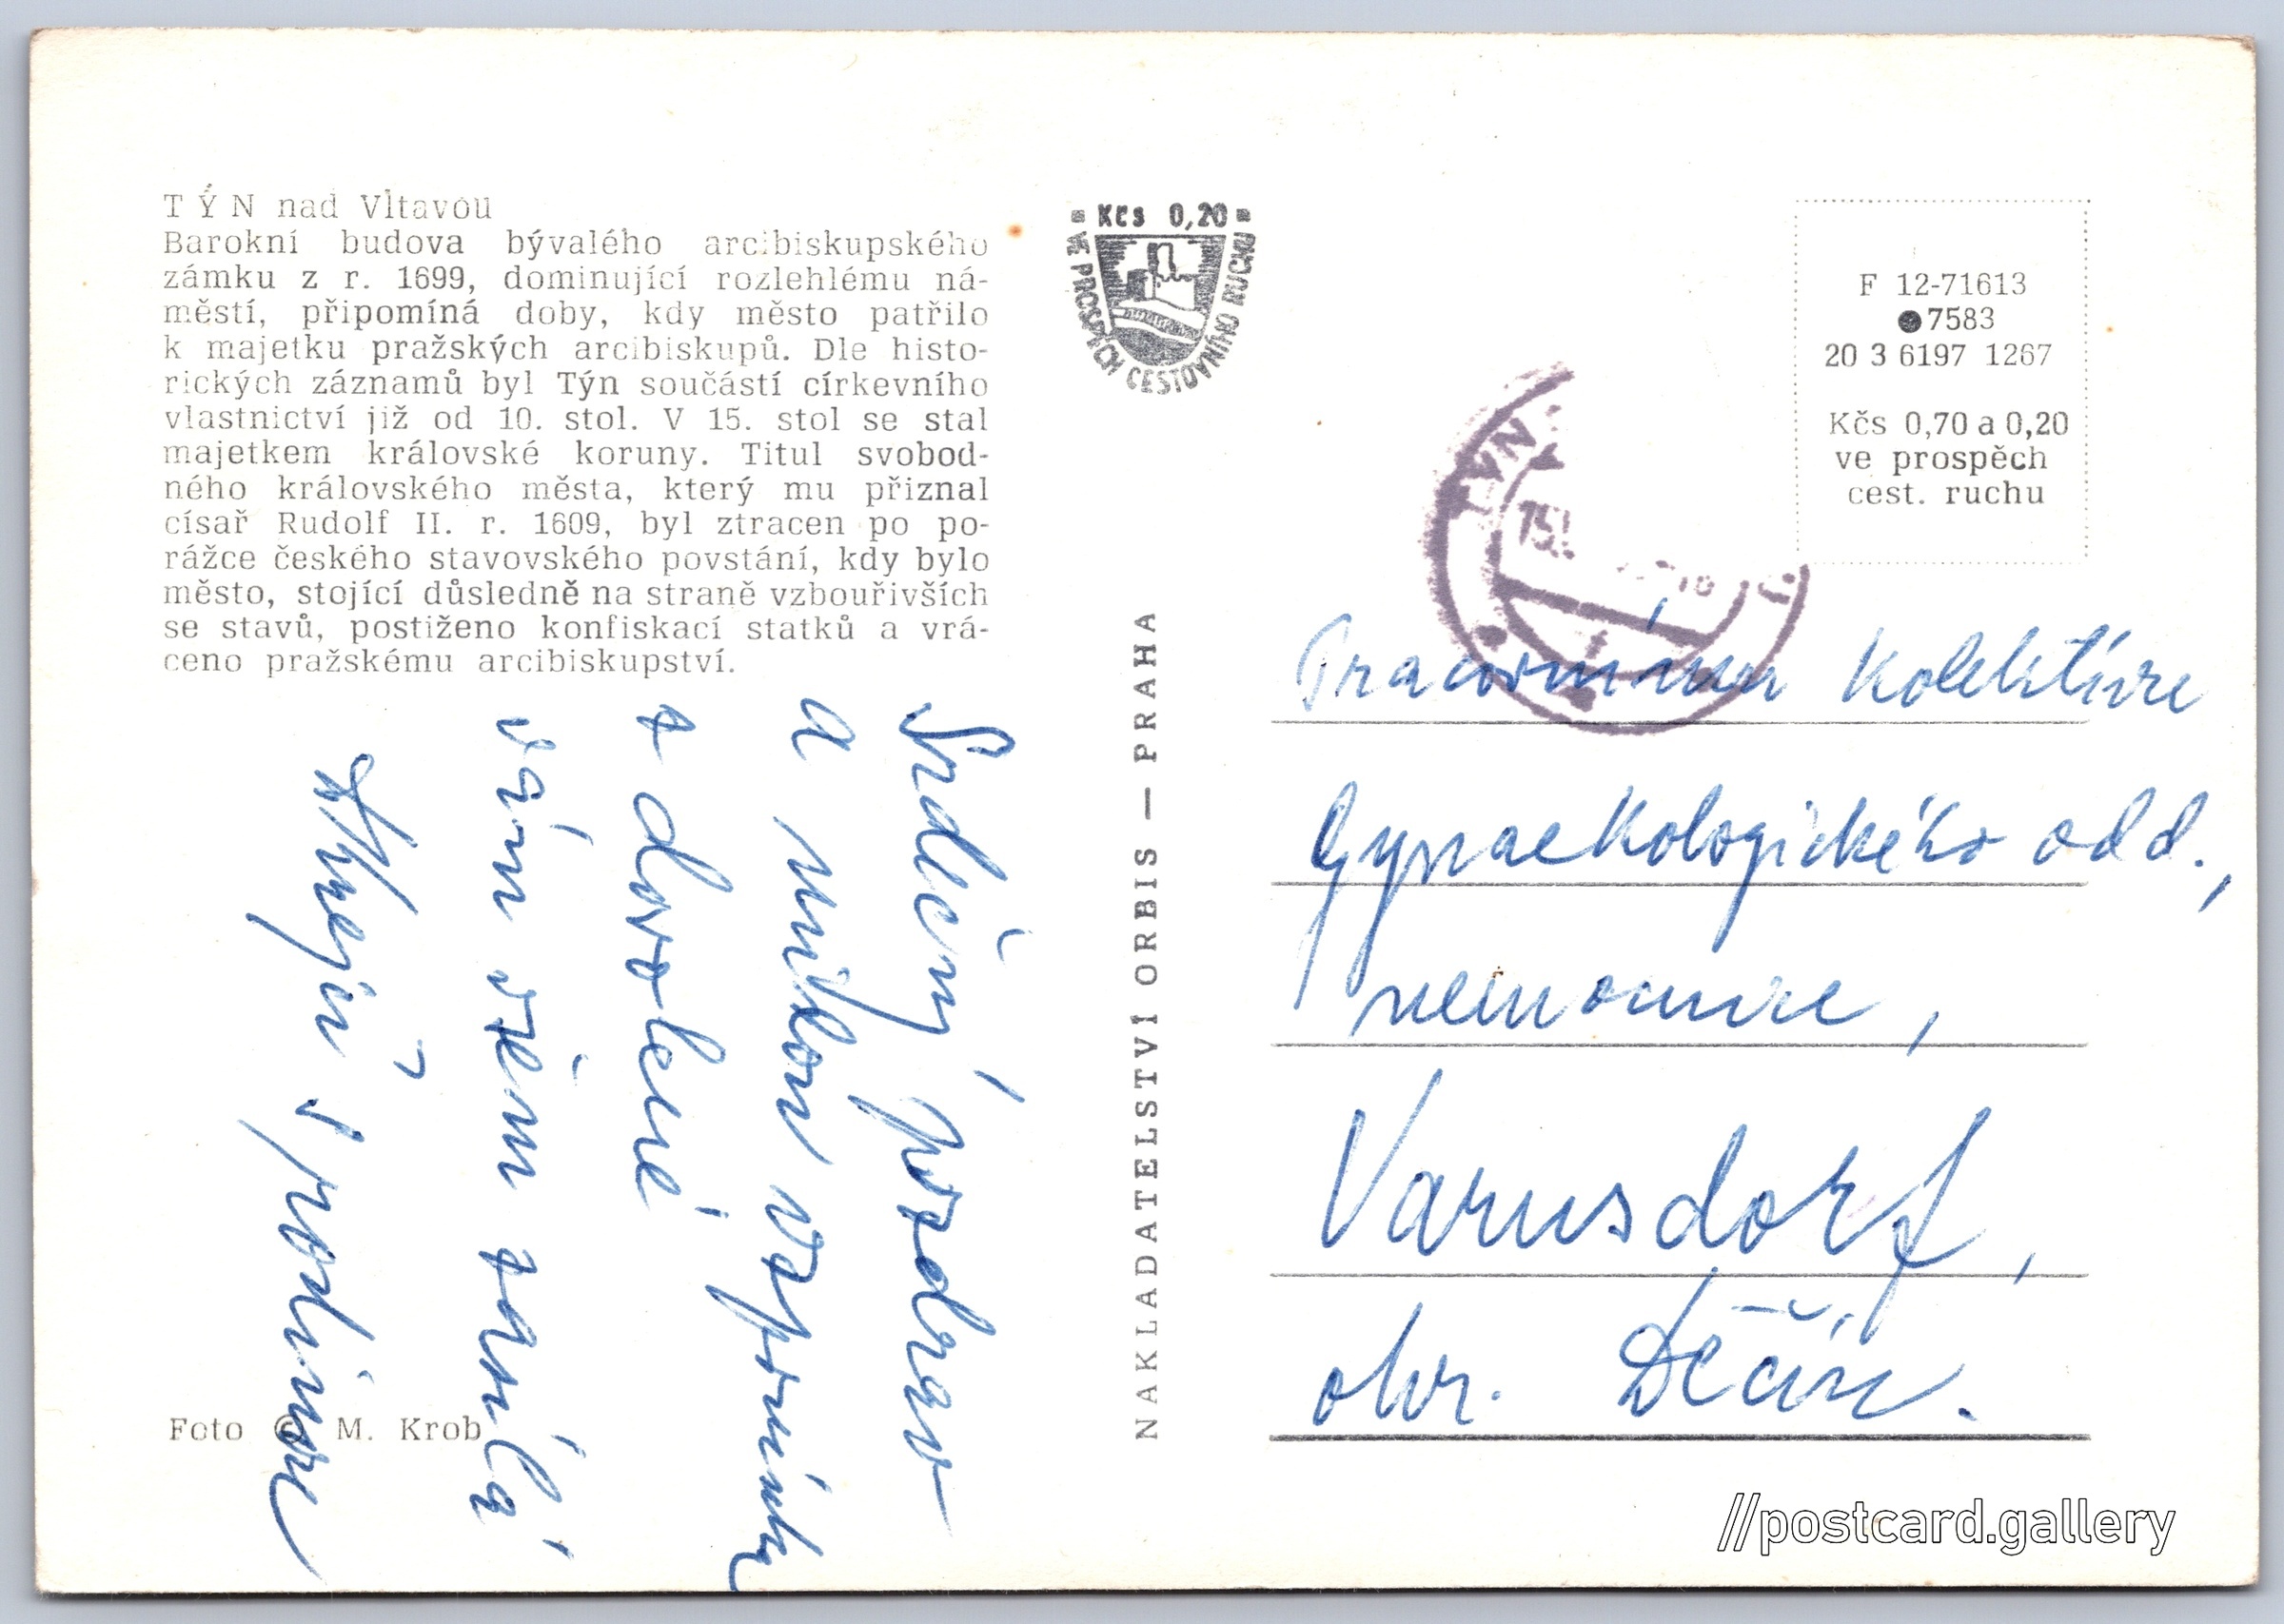 TÝN nad Vltavou
Barokní budova bývalého arcibiskupského
zámku z r. 1699, dominující rozlehlému ná-
městí, připomíná doby, kdy město patřilo
k majetku pražských arcibiskupů. Dle histo-
rických záznamů byl Týn součástí církevního
vlastnictví již od 10. stol. V 15. stol se stal
majetkem královské koruny. Titul svobod-
ného královského města, který mu přiznal
císař Rudolf II. r. 1609, byl ztracen po po-
rážce českého stavovského povstání, kdy bylo
město, stojící důsledně na straně vzbouřivších
se stavů, postiženo konfiskací statků a vrá-
ceno pražskému arcibiskupství.
Srdečný pozdrav
a milou vzpomínku
z dovolené
vám všem zasílá
s rodinou
Foto © M. Krob
NAKLADATELSTVÍ ORBIS — PRAHA
Kčs 0,20
VE PROSPĚCH CESTOVNÍHO RUCHU
F 12-71613
7583
20 3 6197 1267
Kčs 0,70 a 0,20
ve prospěch
cest. ruchu
TÝN
Pracovnímu kolektivu
gynaekologického odd.,
nemocnice,
Varnsdorf,
okr. Děčín.
//postcard.gallery